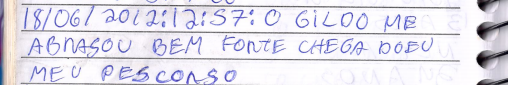 18/06/2012:12:57:O GILDO ME
ABRASOU BEM FORTE CHEGA DOEU
MEU PESCORSO